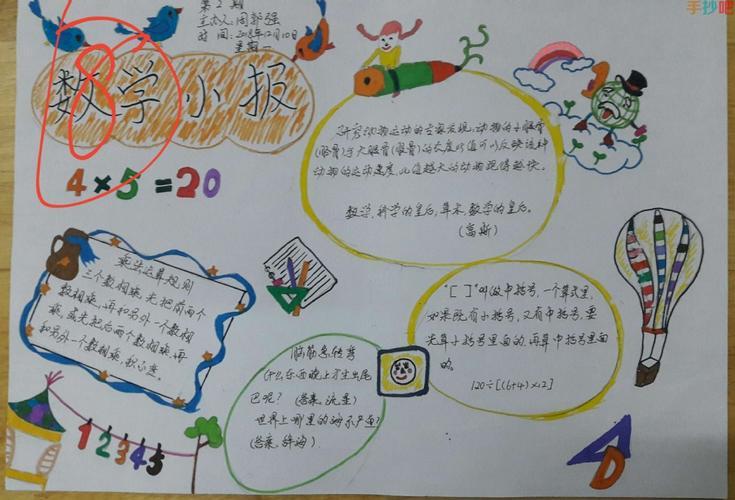 第2期
主办人:周郭强
时间:2018年12月10日
星期一
手抄吧
数学小报
4×5=20
研究动物运动的专家发现,动物的小腿骨
(胫骨)与大腿骨(股骨)的长度比值可以反映该种
动物的运动速度,比值越大的动物跑得越快。
数学,科学的皇后,算术,数学的皇后。
(高斯)
乘法运算规则
三个数相乘,先把前两个
数相乘,再和另外一个数相
乘,或先把后两个数相乘,再
和另外一个数相乘,积不变。
"[ ]"叫做中括号,一个算式里,
如果既有小括号,又有中括号,要
先算小括号里面的,再算中括号里面
的。
120÷[(6+4)×12]
脑筋急转弯
什么东西晚上才生出尾
巴呢? (答案,流星)
世界上哪里的海不产鱼?
(答案,辞海)
1 2 3 4 5